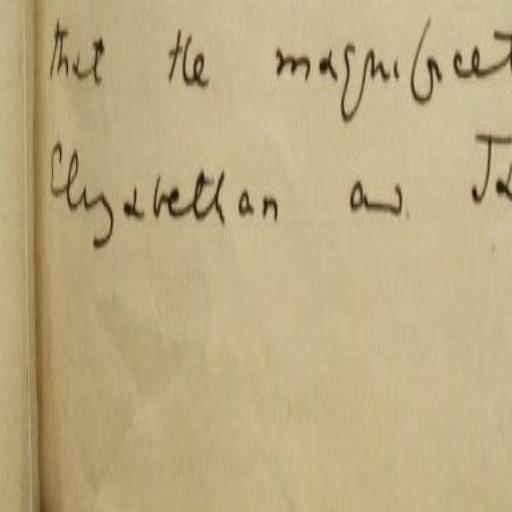 that the magnificet
Elyzabethan and Ja